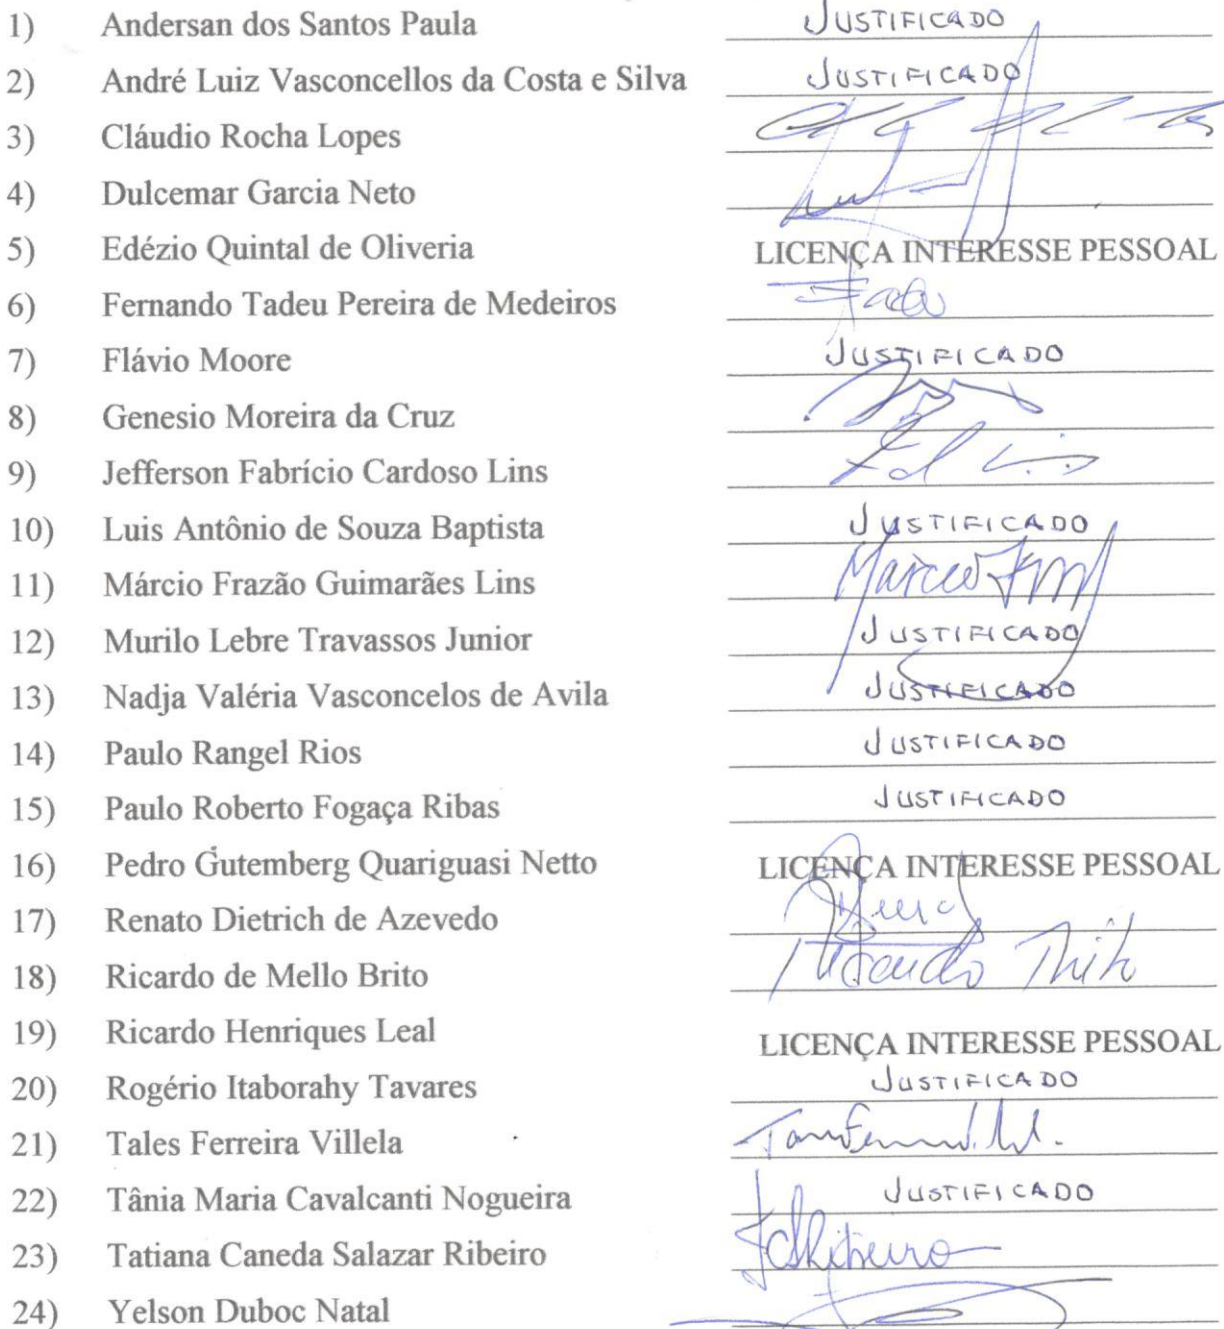 1) Andersan dos Santos Paula JUSTIFICADO
2) André Luiz Vasconcellos da Costa e Silva JUSTIFICADO
3) Cláudio Rocha Lopes
4) Dulcemar Garcia Neto
5) Edézio Quintal de Oliveria LICENÇA INTERESSE PESSOAL
6) Fernando Tadeu Pereira de Medeiros
7) Flávio Moore JUSTIFICADO
8) Genesio Moreira da Cruz
9) Jefferson Fabrício Cardoso Lins
10) Luis Antônio de Souza Baptista JUSTIFICADO
11) Márcio Frazão Guimarães Lins
12) Murilo Lebre Travassos Junior JUSTIFICADO
13) Nadja Valéria Vasconcelos de Avila JUSTIFICADO
14) Paulo Rangel Rios JUSTIFICADO
15) Paulo Roberto Fogaça Ribas JUSTIFICADO
16) Pedro Gutemberg Quariguasi Netto LICENÇA INTERESSE PESSOAL
17) Renato Dietrich de Azevedo
18) Ricardo de Mello Brito
19) Ricardo Henriques Leal LICENÇA INTERESSE PESSOAL
20) Rogério Itaborahy Tavares JUSTIFICADO
21) Tales Ferreira Villela
22) Tânia Maria Cavalcanti Nogueira JUSTIFICADO
23) Tatiana Caneda Salazar Ribeiro
24) Yelson Duboc Natal